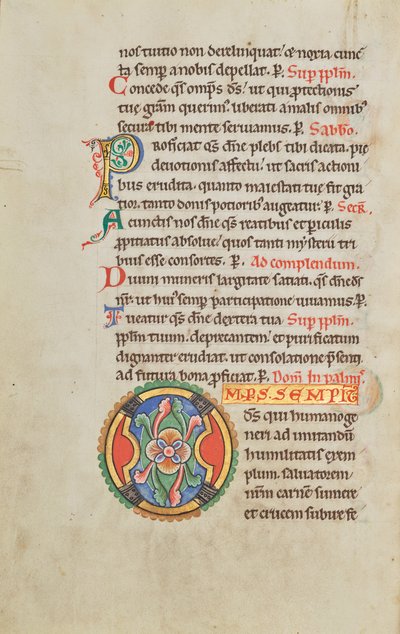 nos tuitio non derelinquat. & noxia cunc
ta semp a nobis depellat. P. Sup pplm.
Concede qs omps ds. ut qui ptectionis
tuę gram querim. liberati a malis omnib
secura tibi mente seruiamus. P. Sabbo.
Proficiat qs dne plebs tibi dicata. pię
deuotionis affectu. ut sacris actioni
bus erudita. quanto maiestati tuę fit gra
tior. tanto donis potiorib augeatur. P. Secr.
A cunctis nos dne qs reatibus et piculis
ppitiatus absolue. quos tanti mysterii tri
buis esse consortes. P. Ad complendum.
Diuini muneris largitate satiati. qs dne ds
nr. ut hui semp participatione uiuamus. P.
Tueatur qs dne dextera tua Sup pplm.
pplm tuum deprecantem. et purificatum
dignanter erudiat. ut consolatione psenti
ad futura bona pficiat. P. Dom in palmis
OMPS. SEMPIT
ds qui humano ge
neri ad imitandu
humilitatis exem
plum. saluatorem
nrm carne sumere
et crucem subire fe